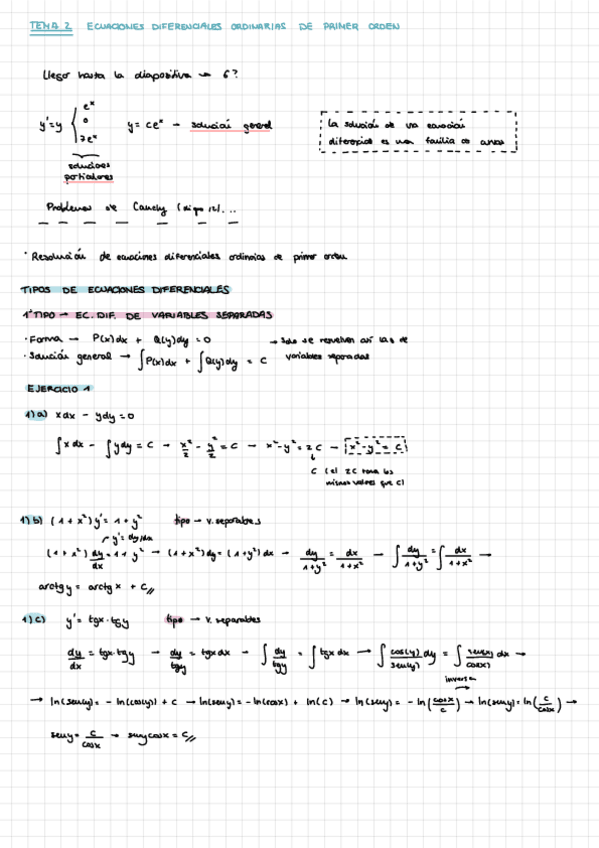 TEMA 2 ECUACIONES DIFERENCIALES ORDINARIAS DE PRIMER ORDEN
Llegar hasta la diapositiva → 6?
y'=y { eˣ
0
7eˣ
y = ceˣ → solución general
soluciones
particulares
La solución de una ecuación
diferencial es una familia de curvas
Problemas de Cauchy (diapo 12)...
· Resolución de ecuaciones diferenciales ordinarias de primer orden
TIPOS DE ECUACIONES DIFERENCIALES
1º TIPO → EC. DIF. DE VARIABLES SEPARADAS
· Forma → P(x)dx + Q(y)dy = 0 → Solo se resuelven así las de
· Solución general → ∫P(x)dx + ∫Q(y)dy = C variables separadas
EJERCICIO 1
1)a) xdx - ydy = 0
∫xdx - ∫ydy = C → x²/2 - y²/2 = C → x²-y² = 2C → x²-y² = C
C (el 2C toma los
mismos valores que C)
1)b) (1+x²)y' = 1+y² tipo → v. separables
y' = dy/dx
(1+x²) dy/dx = 1+y² → (1+x²)dy = (1+y²)dx → dy/1+y² = dx/1+x² → ∫dy/1+y² = ∫dx/1+x² →
arctg y = arctg x + C//
1)c) y' = tgx·tgy tipo → v. separables
dy/dx = tgx·tgy → dy/tgy = tgx dx → ∫dy/tgy = ∫tgx dx → ∫cos(y)/sen(y) dy = ∫sen(x)/cos(x) dx →
inversa
→ ln(seny) = - ln(cosy) + c → ln(seny) = - ln(cosx) + ln(c) → ln(seny) = - ln(cosx/c) → ln(seny) = ln(c/cosx) →
seny = c/cosx → seny cosx = C//